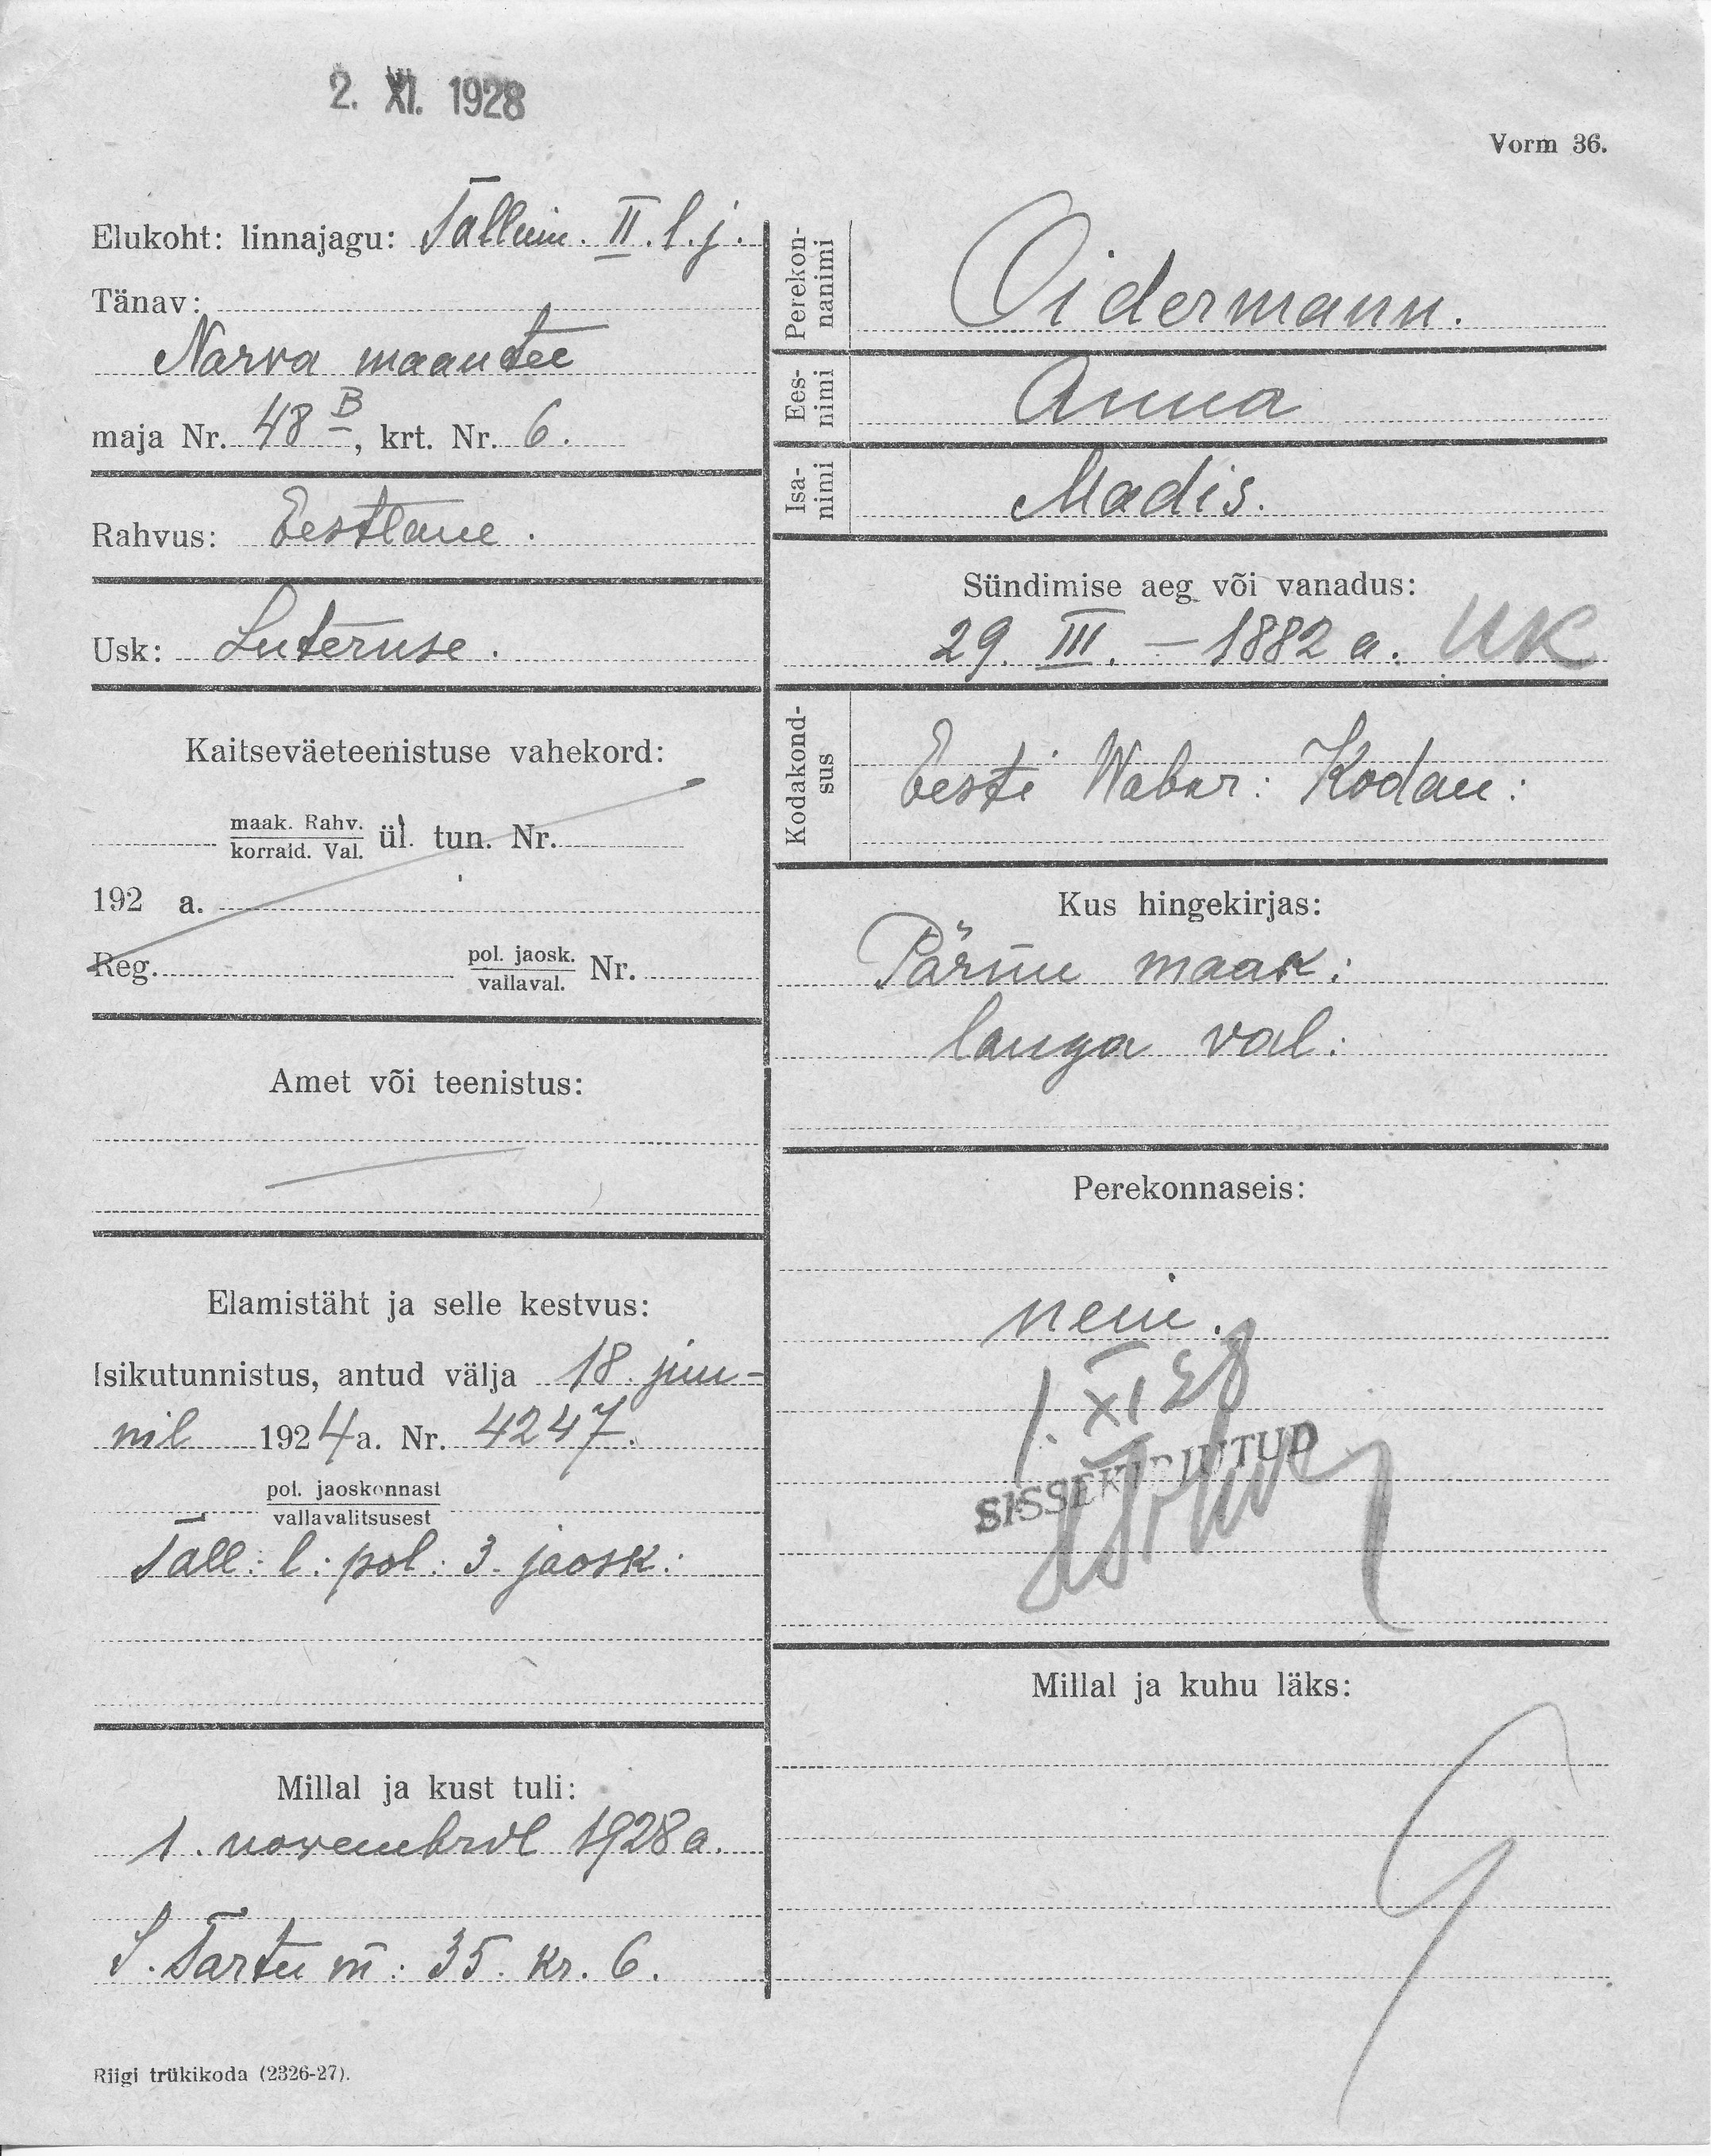 2. XI. 1928
Vorm 36.
Elukoht: linnajagu: Tallinn. II. l. j.
Tänav:
Narva maantee
maja Nr. 48 B, krt. Nr. 6.
Rahvus: Eestlane.
Usk: Luteruse.
Kaitseväeteenistuse vahekord:
maak. Rahv.
korraid. Val. ül. tun. Nr.
192 a.
Reg. pol. jaosk.
vallaval. Nr.
Amet või teenistus:
Elamistäht ja selle kestvus:
Isikutunnistus, antud välja 18. juu-
nil 1924 a. Nr. 4247.
pol. jaoskonnast
vallavalitsusest
Tall: l: pol: 3. jaosk:
Millal ja kust tuli:
1. novembril 1928 a.
S. Tartu m: 35. kr. 6.
Riigi trükikoda (2326-27).
Perekon-
nanimi
Oidermann.
Ees-
nimi
Anna
Isa-
nimi
Madis.
Sündimise aeg või vanadus:
29. III. – 1882 a. UK
Kodakond-
sus
Eesti Wabar: Kodan:
Kus hingekirjas:
Pärnu maak:
Perekonnaseis:
neiu.
1. XI 28
SISSEKIRJUTUD
Millal ja kuhu läks: